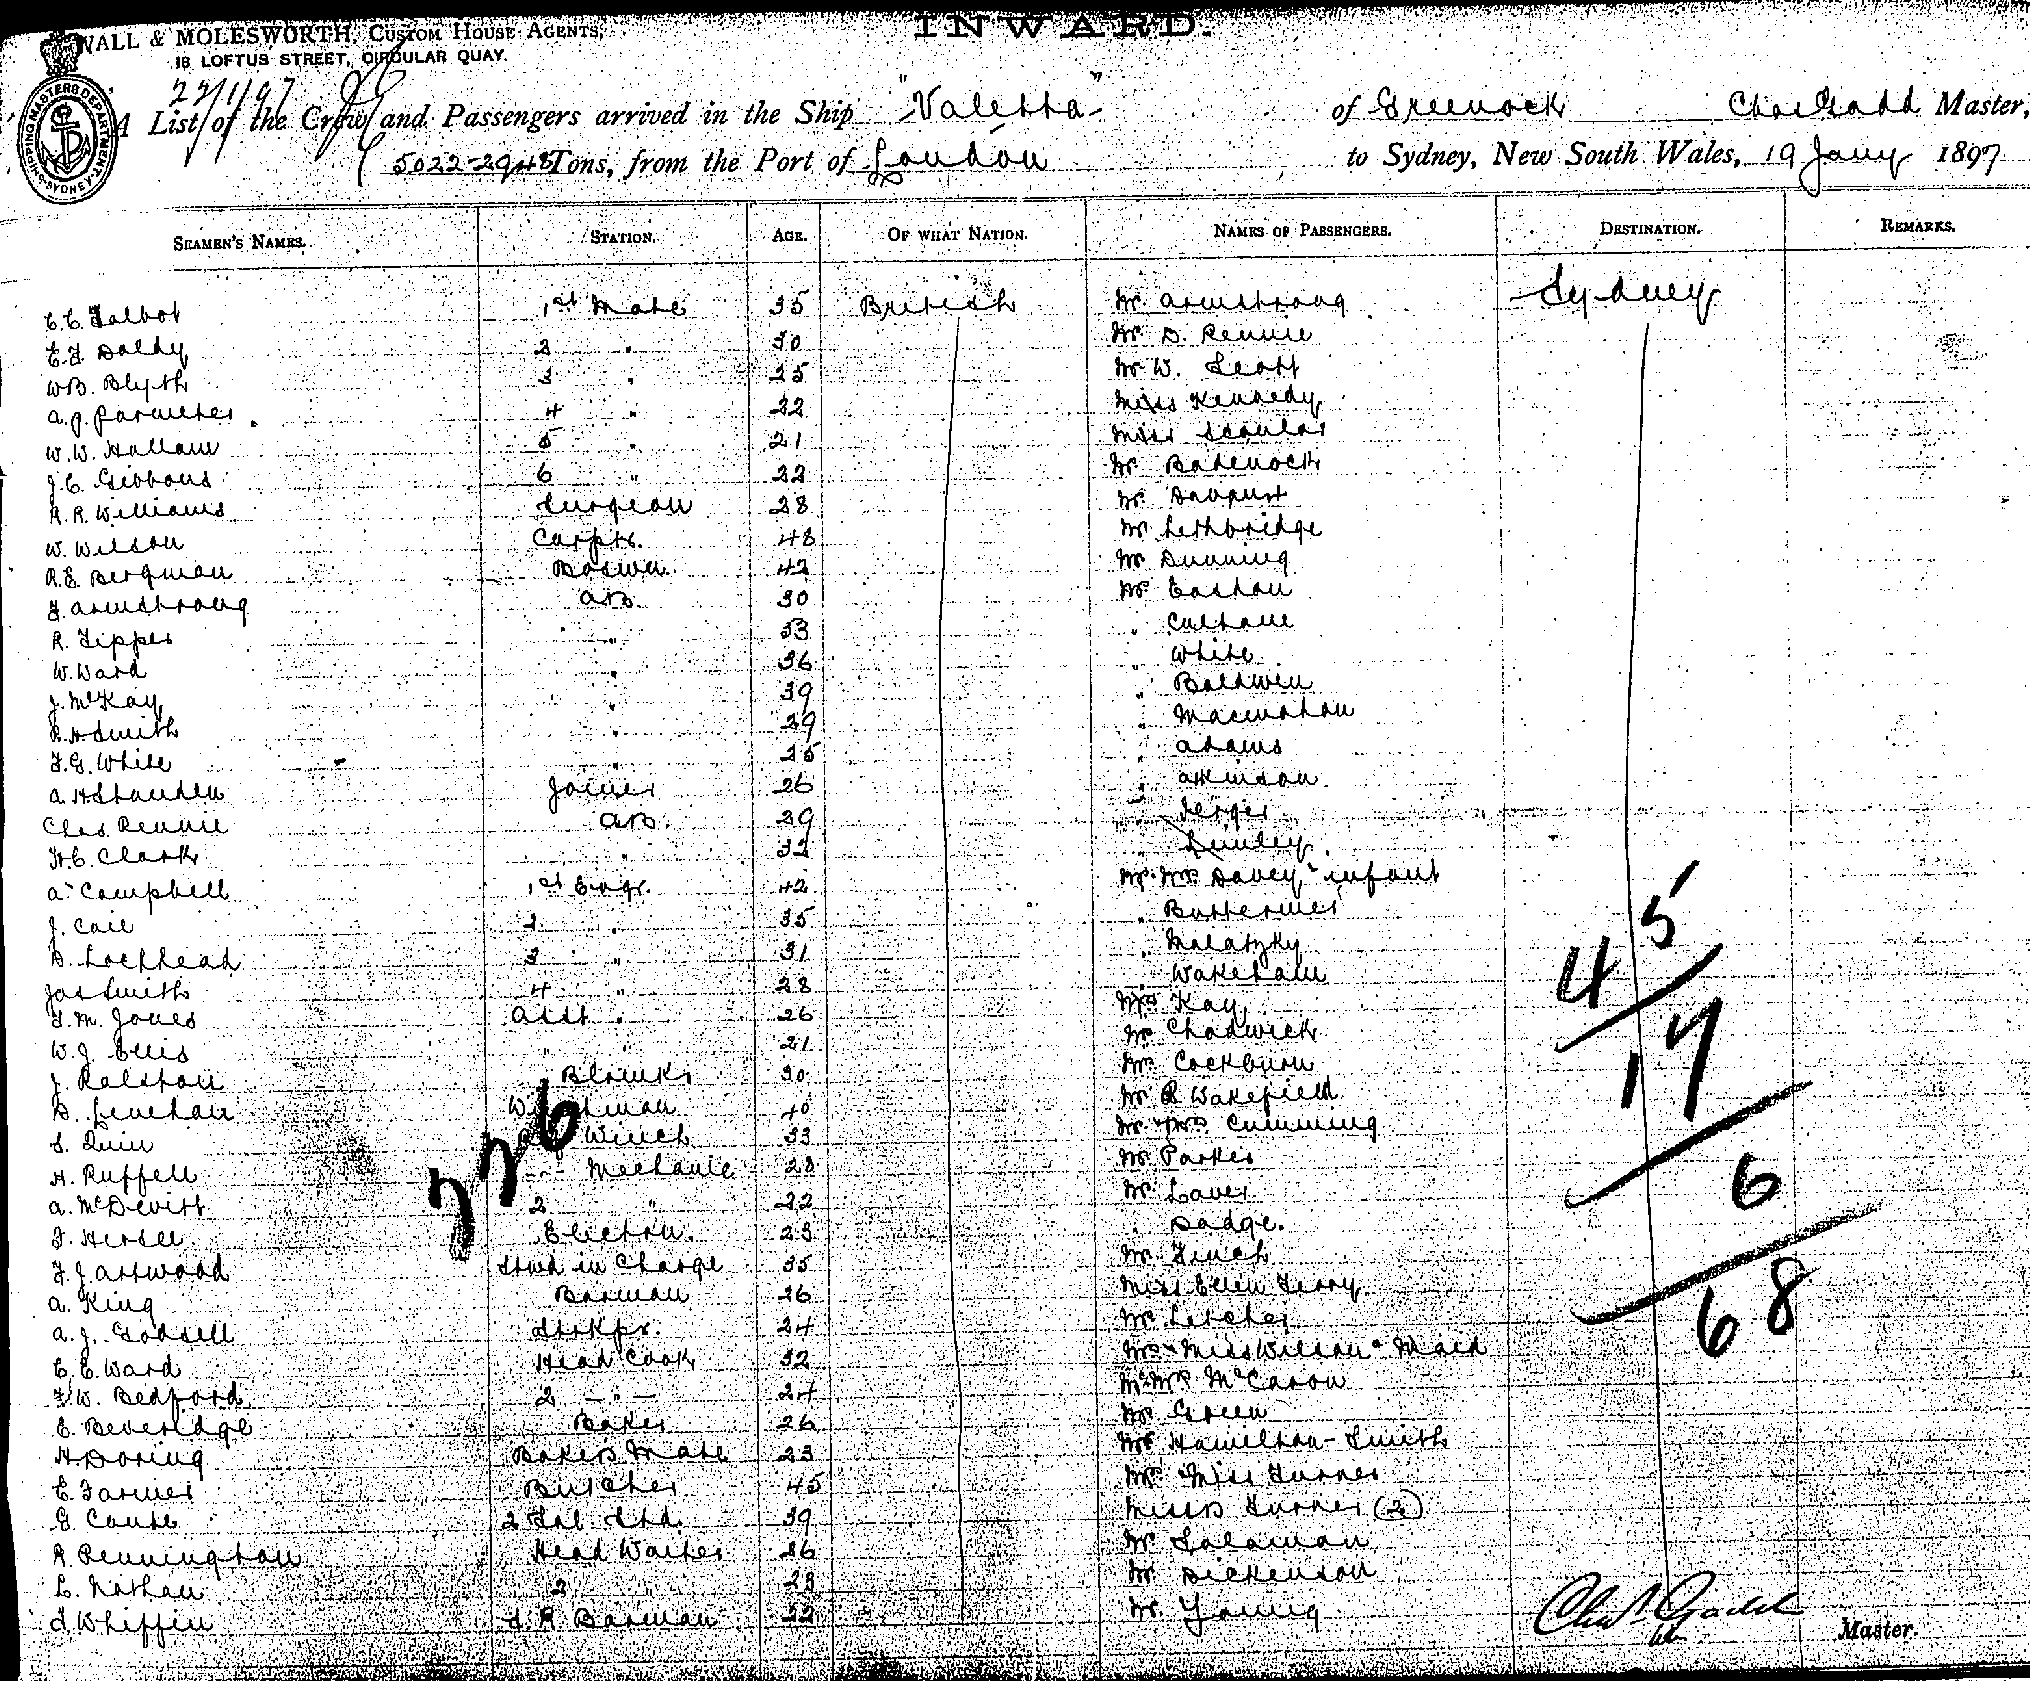 INWARD.
WALL & MOLESWORTH, CUSTOM HOUSE AGENTS,
18 LOFTUS STREET, CIRCULAR QUAY.
SHIPPING MASTERS DEPARTMENT SYDNEY
22/1/97
A List of the Crew and Passengers arrived in the Ship "Valetta" of Greenock Chas Gadd Master,
5022-2948 Tons, from the Port of London to Sydney, New South Wales, 19 Jany 1897
SEAMEN'S NAMES. STATION. AGE. OF WHAT NATION. NAMES OF PASSENGERS. DESTINATION. REMARKS.
C.C. Talbot 1st Mate 35 British Mr Armstrong Sydney
E.F. Daldy 2 " 30 Mr D. Rennie
W.B. Blyth 3 " 25 Mr W. Scott
A.J. Parmiter 4 " 22 Miss Kennedy
W.W. Hallam 5 " 21 Miss Scoular
J.C. Gibbons 6 " 22 Mr Badenock
R.R. Williams Surgeon 28 Mr
W. Wilson Carptr. 48 Mr Lethbridge
R.E. Bergman Boswn. 42 Mr Dunning
F. Armstrong AB. 30 Mr Easton
R. Tipper " 33 " Culhane
W. Ward " 36 " White
J. McKay " 39 " Baldwin
R.H Smith " 29 " Macmahon
F.G. White " 25 " Adams
A.H Standen Joiner 26 " Atkinson
Chas. Rennie AB. 29 "
H.C. Clark " 32 " Linley
A. Campbell 1st Engr. 42 Mr. Mrs Davey & infant
J. Cail 2 " 35 "
D. Lochhead 3 " 31 " Malatzky
Jas Smith 4 " 28 " Wakeham
T.M. Jones Asst " 26 Mrs Kay
W.J. Ellis " " 21 Mr Chadwick
J. Ralston Blrmkr 30 Mr Cockburn
D. Lenehan 40 Mr R Wakefield
S. Quin Winch 33 Mr & Mrs Cumming
H. Ruffell Mechanic 28 Mr Parker
A. McDevitt 2 " 22 Mr Laver
F. Hersee Electrn. 23 " Dadge.
F.J Attwood Stwd in Charge 35 Mr Finch
A. King Barman 26 Miss Ellen Terry
A.J. Godsell Strkpr. 24 Mr Letcher
C.E. Ward Head Cook 32 Mrs & Miss Wilson & Maid
F.W. Bedford 2 - " - 24 Mr & Mrs McCaron
E. Beveridge Baker 26 Mr Green
H Doring Bakers Mate 23 Mr Hamilton-Smith
E. Farmer Butcher 45 Mr & Miss Turner
G. Caute 2 Sal. Std. 39 Misses Turner (2)
R. Pennington Head Waiter 26 Mr Salaman
L. Nathan 2 " 23 Mr Dickenson
S Whiffin S.R Barman 22 Mr Young
776
45
17
6
68
Chas Gadd
Master.